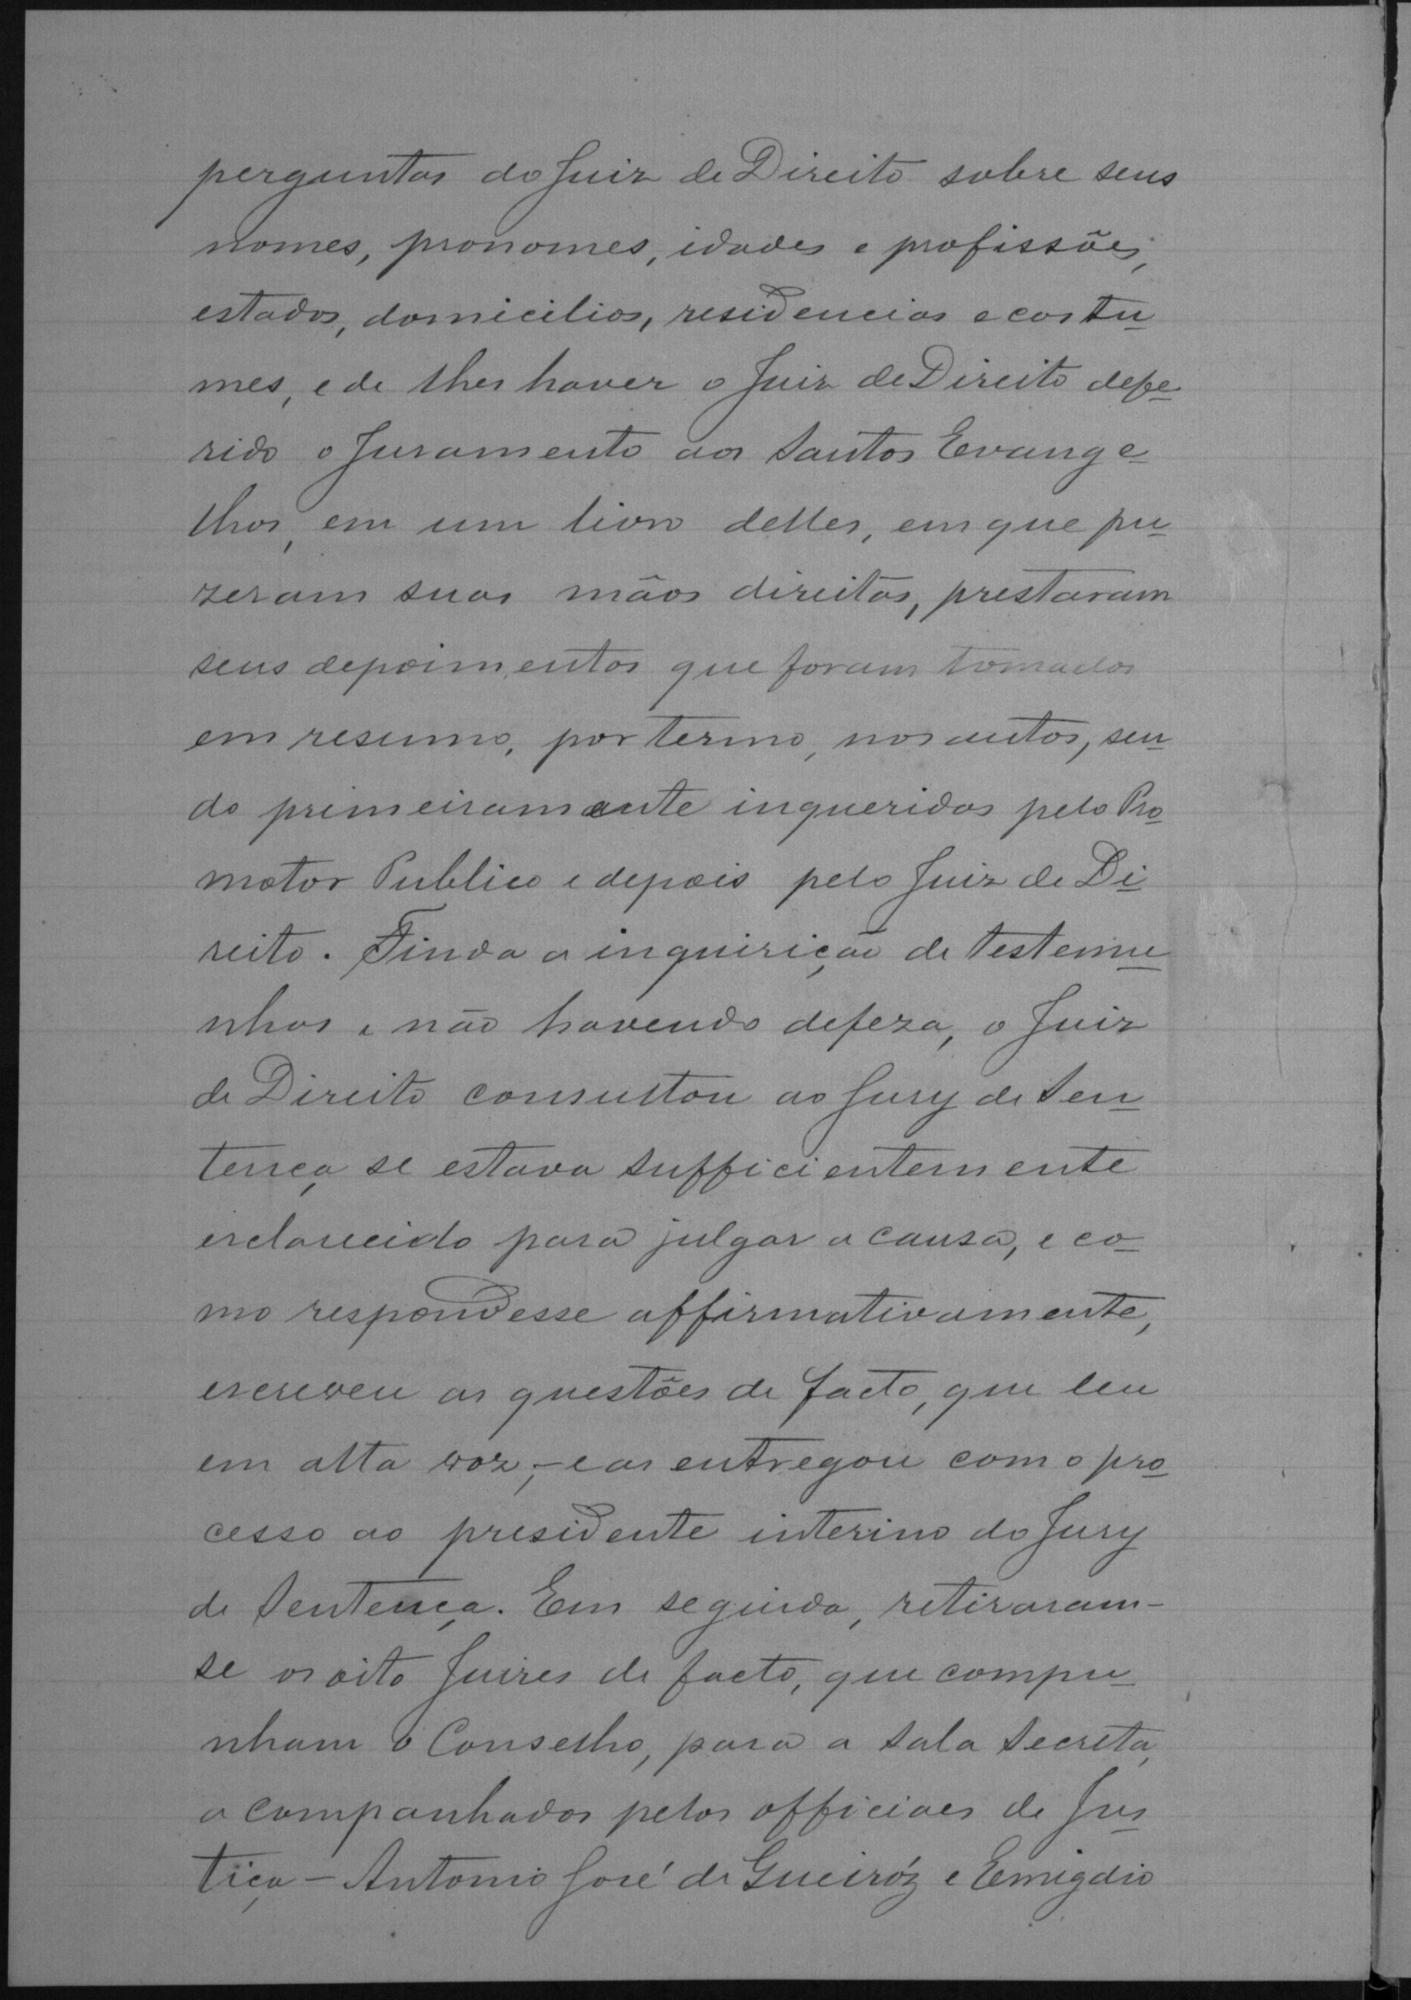 perguntas do Juiz de Direito sobre seus
nomes, pronomes, idades e profissões,
estados, domicilios, residencias e costu-
mes, e de lhes haver o Juiz de Direito defe-
rido o Juramento aos Santos Evange-
lhos, em um livro delles, em que pu-
zeram suas mãos direitas, prestaram
seus depoimentos que foram tomados
em resumo, por termo, nos autos, sen-
do primeiramente inqueridas pelo Pro-
motor Publico e depois pelo Juiz de Di-
reito. Finda a inquirição de testemu-
nhas e não havendo defeza, o Juiz
de Direito consultou ao Jury de Sen-
tença se estava sufficientemente
esclarecido para julgar a causa, e co-
mo respondesse affirmativamente,
escreveu as questões de facto, que leu
em alta voz, - e as entregou com o pro-
cesso ao presidente interino do Jury
de Sentença. Em seguida, retiraram-
se os oito Juizes de facto, que compu-
nham o Conselho, para a sala secreta,
acompanhados pelos officiaes de Jus-
tiça - Antonio José de Gueiróz e Emigdio